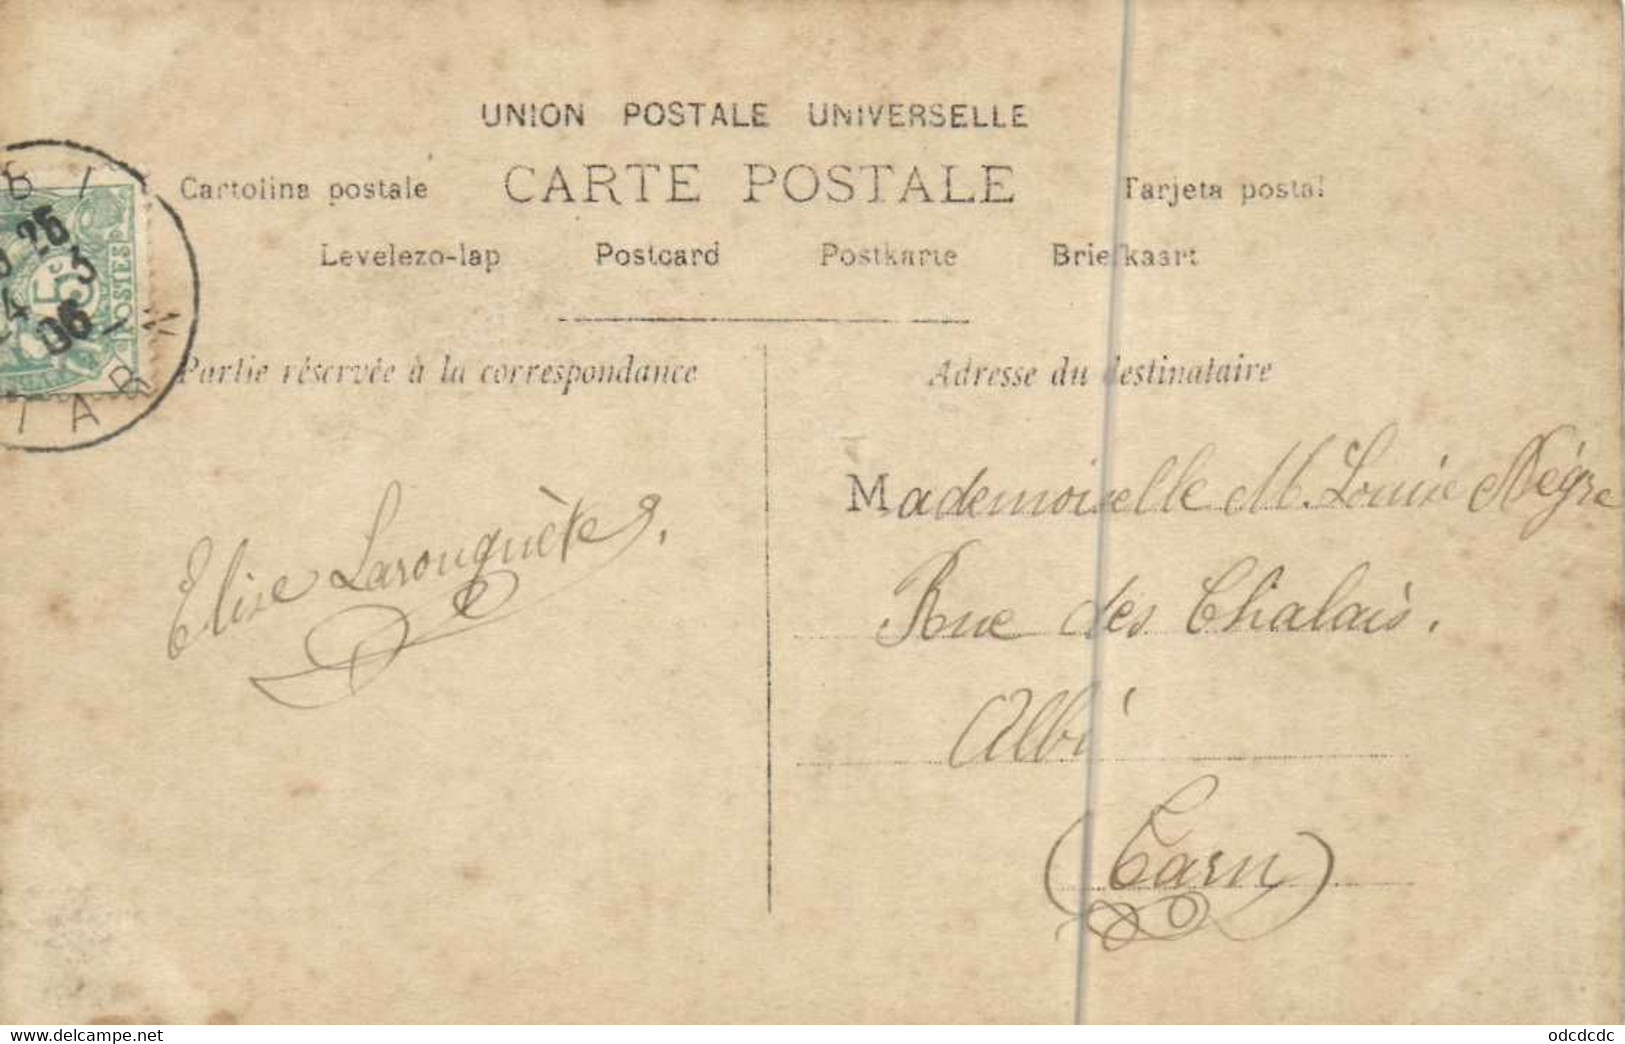 UNION POSTALE UNIVERSELLE
Cartolina postale CARTE POSTALE Tarjeta postal
Levelezo-lap Postcard Postkarte Briefkaart
B I
25
5c 3
4 06
POSTES
TAR
Partie réservée à la correspondance
Adresse du destinataire
Mademoiselle M. Louise Nègre
Elise Larouquète.
Rue des Chalais.
Albi
(Tarn)
www.delcampe.net
odcdcdc